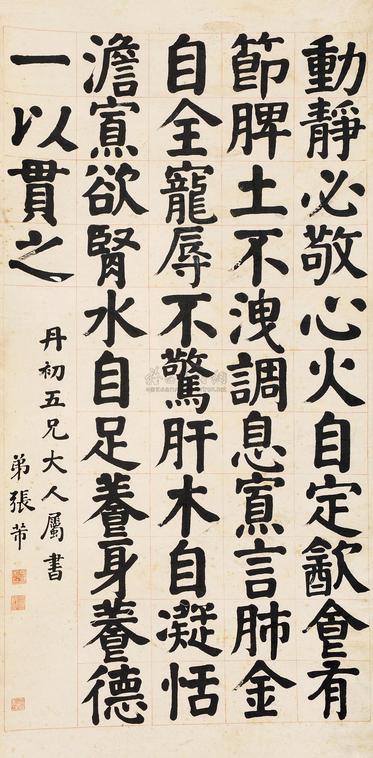 動靜必敬心火自定㱃食有
節脾土不洩調息寡言肺金
自全寵辱不驚肝木自凝恬
澹寡欲腎水自足養身養德
一以貫之
丹初五兄大人屬書
弟張芾